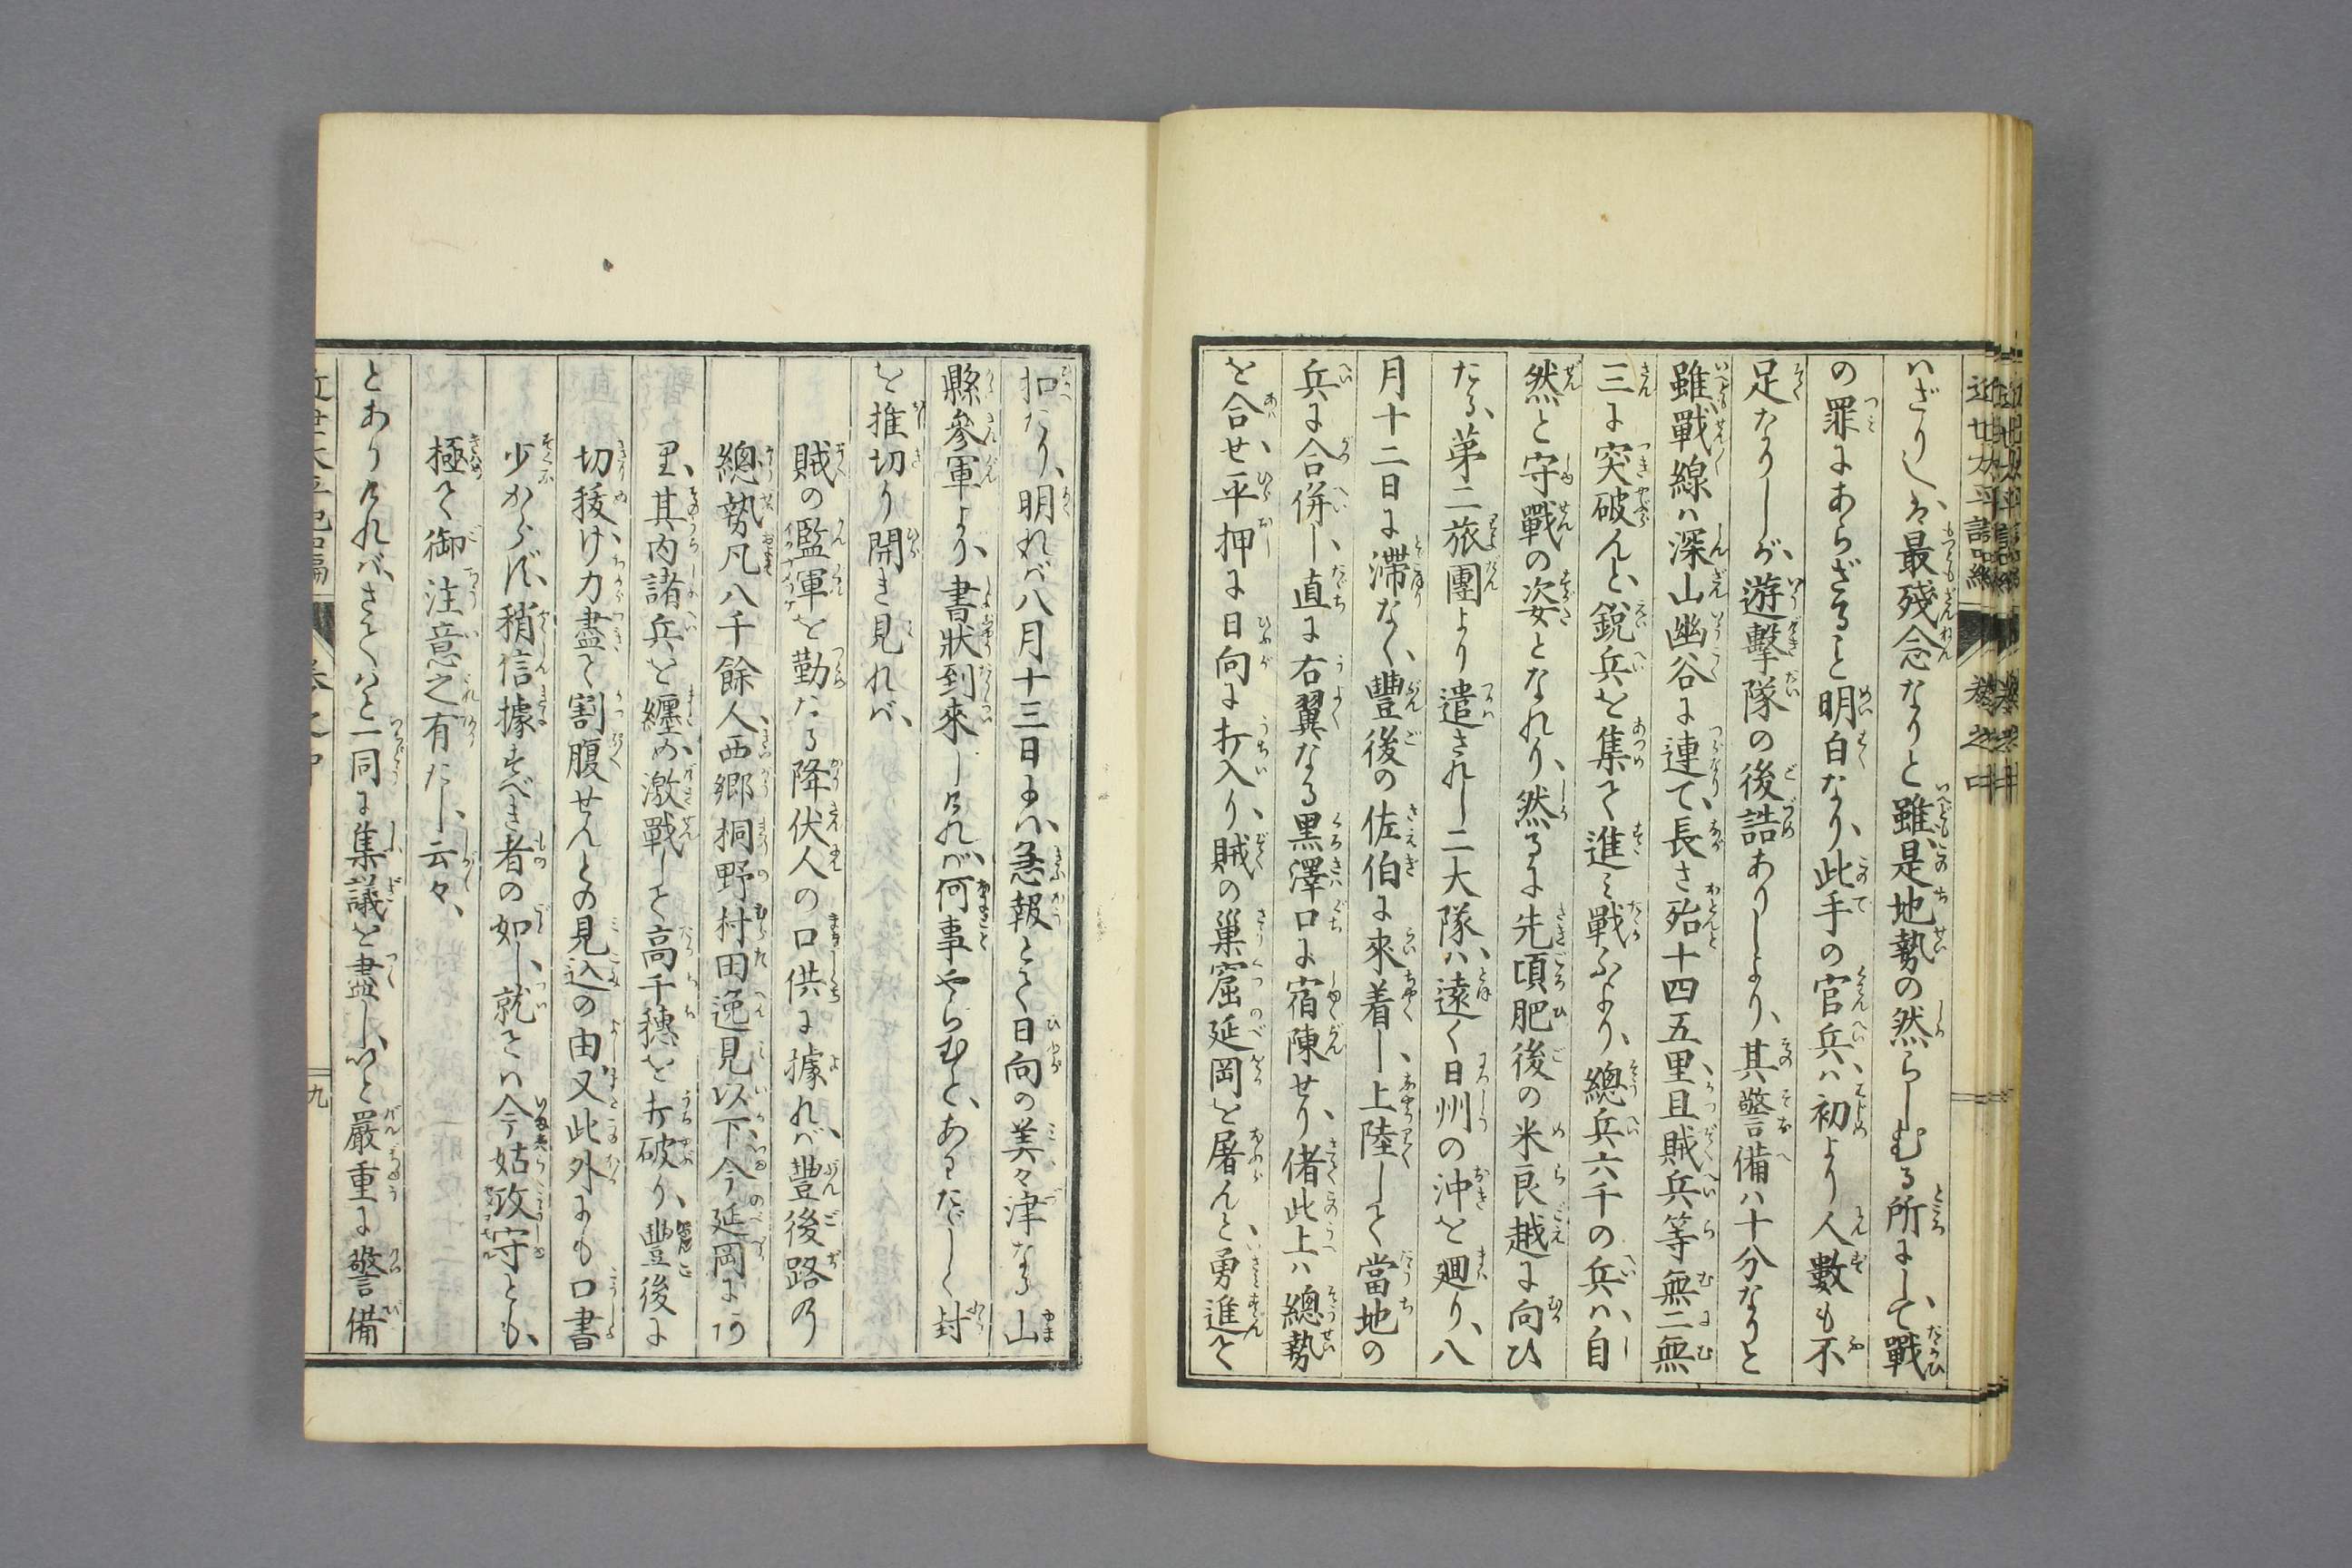 近世太平記 二編 巻之中
いざりしハ最殘念なりと雖、是地勢の然らしむる所にして、戰
の罪にあらざること明白なり、此手の官兵ハ初より人數も不
足なりしが、遊擊隊の後詰ありしより、其警備ハ十分なりと
雖、戰線ハ深山幽谷に連て、長さ殆十四五里、且賊兵等無二無
三に突破んと、銳兵を集て進ミ戰ふより、總兵六千の兵ハ、自
然と守戰の姿となれり、然るに先頃肥後の米良越に向ひ
たる、第二旅團より遣されし二大隊ハ、遠く日州の沖を廻り、八
月十二日に滯なく、豐後の佐伯に來着し、上陸して當地の
兵に合併し、直に右翼なる黑澤口に宿陳せり、偖此上ハ總勢
を合せ、平押に日向に打入り、賊の巢窟延岡を屠んと、勇進て
扣たり、明れバ八月十三日にハ、急報とて日向の美々津なる山
縣參軍より、書狀到來しけれバ、何事やらむと、あわたゞしく封
を推切り開き見れバ、
賊の監軍を勤たる降伏人の口供に據れバ、豐後路の
總勢凡八千餘人、西鄉桐野村田逸見以下、今延岡にあ
り、其内諸兵を纏め、激戰して高千穗を打破り、豐後に
切拔け、力盡て割腹せんとの見込の由、又此外にも口書
少からず、稍信據すべき者の如し、就てハ今姑攻守とも、
極て御注意之有たし、云々、
とありけれバ、さてハと一同に集議を盡し、いと嚴重に警備
九